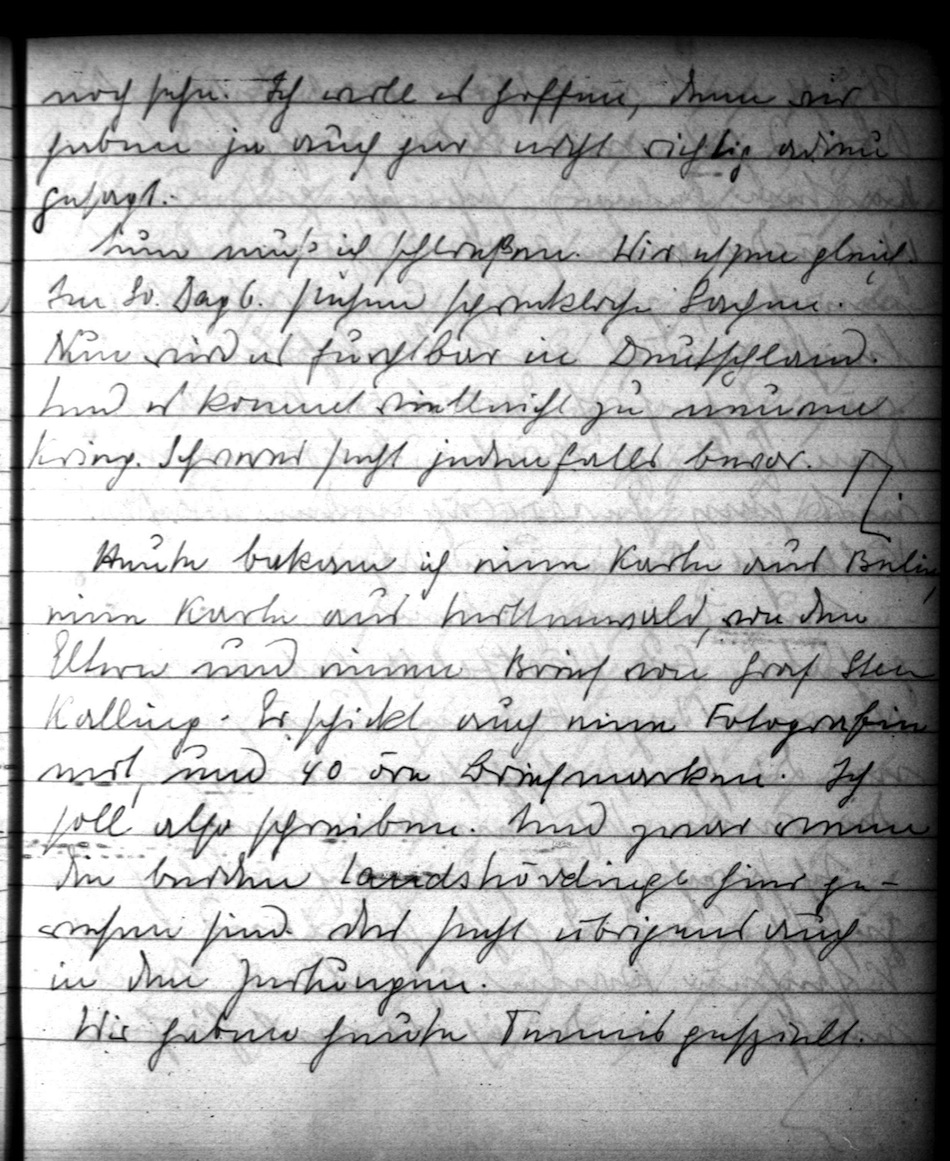 noch sehn. Ich will es hoffen, denn wir
haben ja auch gar nicht richtig adieu
gesagt.
Nun muß ich schließen. Wir essen gleich.
Im Sv. Dagb. stehen schreckliche Sachen.
Nun wird es furchtbar in Deutschland.
Und es kommt vielleicht zu neuem
Krieg. Schweres steht jedenfalls bevor.
Heute bekam ich eine Karte aus Berlin,
eine Karte aus Mittenwald, von den
Eltern und einen Brief von Graf Sten
Kalling. Er schickt auch eine Fotografie
mit, und 40 öre Briefmarken. Ich
soll also schreiben. Und zwar wenn
die beiden landshövdinge hier ge-
wesen sind. Das steht übrigens auch
in den Zeitungen.
Wir haben heute Tennis gespielt.